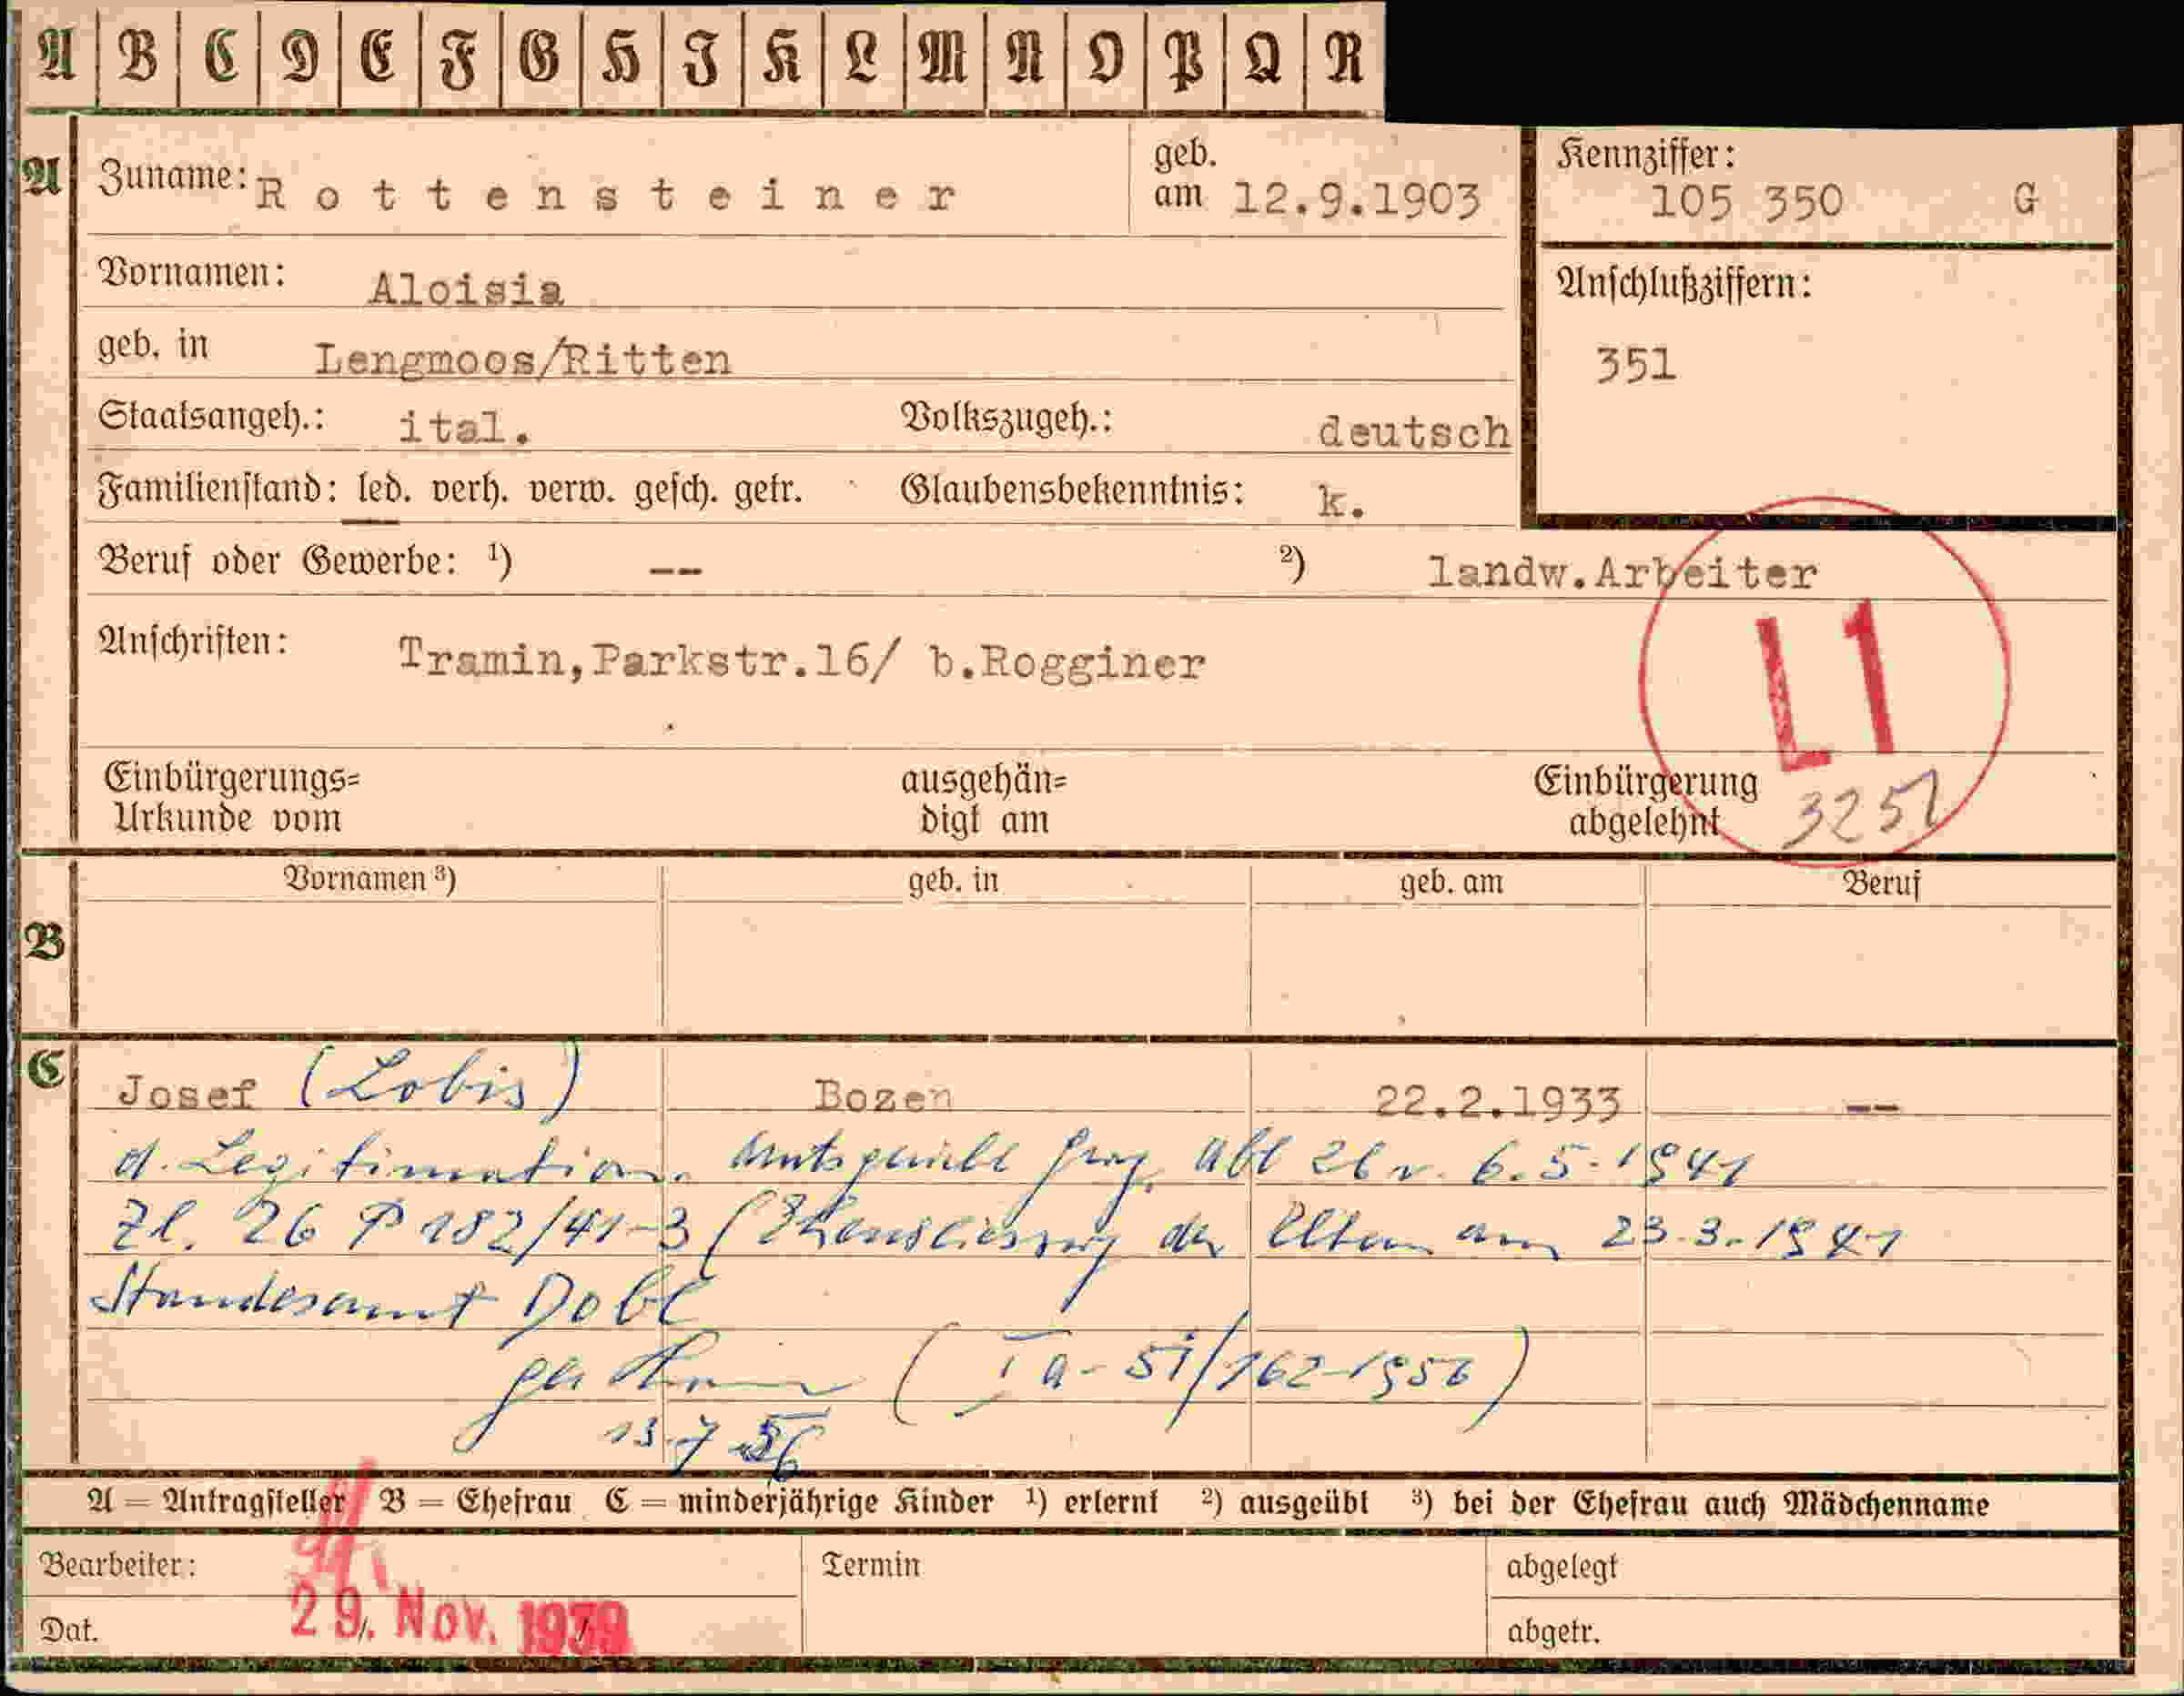 A B C D E F G H I K L M N O P Q R
A Zuname: Rottensteiner geb. am 12.9.1903
Kennziffer: 105 350 G
Vornamen: Aloisia
Anschlußziffern:
geb. in Lengmoos/Ritten
351
Staatsangeh.: ital. Volkszugeh.: deutsch
Familienstand: led. verh. verw. gesch. getr. Glaubensbekenntnis: k.
Beruf oder Gewerbe: ¹) -- ²) landw.Arbeiter
Anschriften: Tramin,Parkstr.16/ b.Rogginer
L1
Einbürgerungs= ausgehän= Einbürgerung
Urkunde vom digt am abgelehnt 3251
Vornamen ³) geb. in geb. am Beruf
B
C Josef (Lobis) Bozen 22.2.1933 --
d. Legitimation. Amtsgericht Abt 26 v. 6.5.1941
Zl. 26 P 182/41-3 (Eheschliessung der Eltern am 23.3.1941
Standesamt Dobl
(I a - 51/162-1956)
13.7.56
A = Antragsteller B = Ehefrau C = minderjährige Kinder ¹) erlernt ²) ausgeübt ³) bei der Ehefrau auch Mädchenname
Bearbeiter: Termin abgelegt
Dat. 29. Nov. 1939 abgetr.